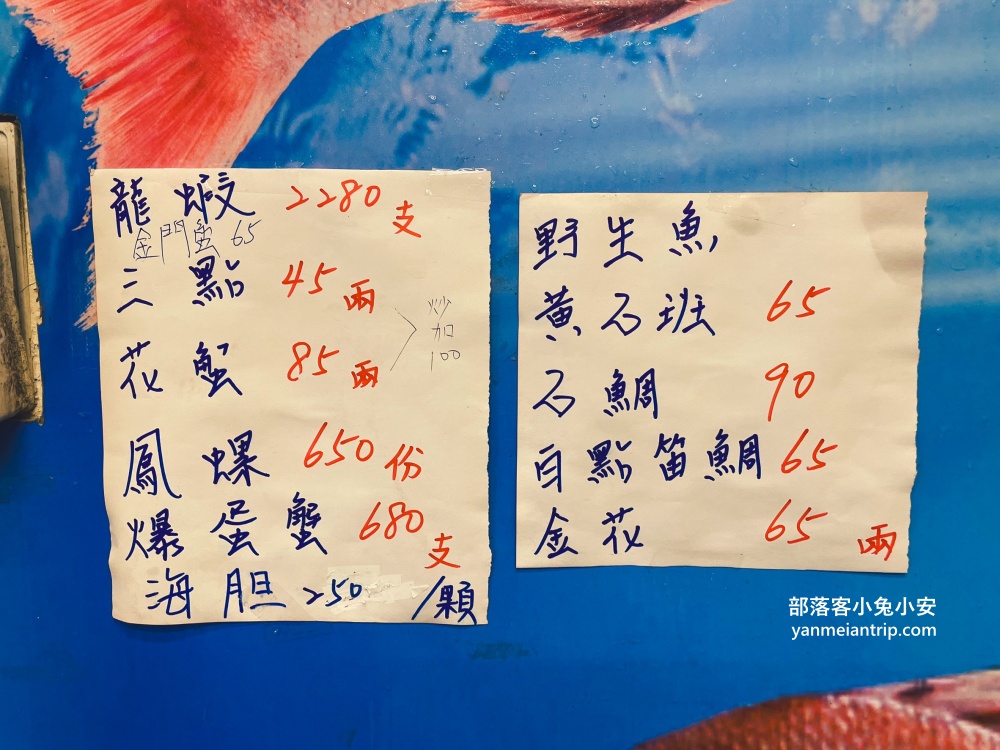 龍蝦 2280 支
金門蚵 65
三點 45 兩
花蟹 85 兩
炒
加
100
鳳螺 650 份
爆蛋蟹 680 支
海胆 250 /顆
野生魚
黃石班 65
石鯛 90
白點笛鯛 65
金花 65 兩
部落客小兔小安
yanmeiantrip.com